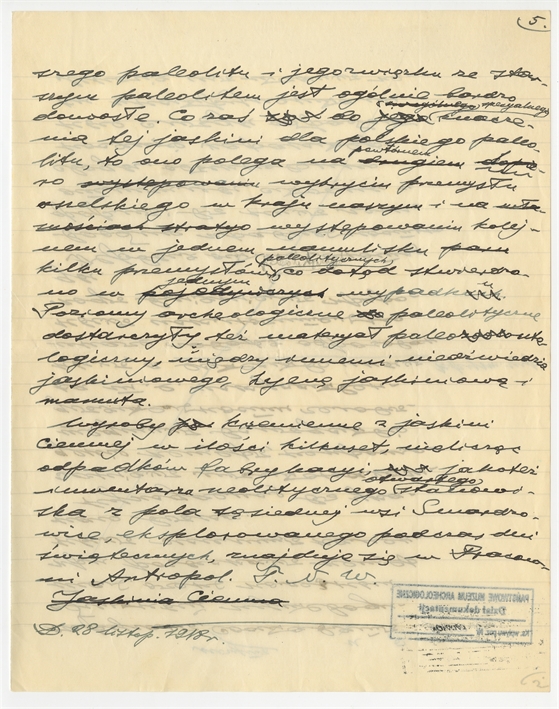 5.
szego paleolitu i jego związku ze star-
szym paleolitem jest ogólnie bardzo
doniosłe. Co zaś do specjalnego znacze-
nia tej jaskini dla polskiego paleo-
litu, to ono polega na powtórnem
wykryciu przemysłu
w kraju naszym i na
występowaniu kolej-
nem w jednem namulisku paru
kilku przemysłów paleolitycznych, co dotąd stwierdzo-
no w jedynym wypadku.
Poziomy archeologiczne paleolityczne
dostarczyły też materjał paleonto-
logiczny, między innemi niedźwiedzia
jaskiniowego, hyenę jaskiniową i
mamuta.
Wyroby krzemienne z jaskini
Ciemnej w ilości kilkuset, nie licząc
odpadków fabrykacyi, jakoteż
inwentarz neolitycznego otwartego stanowi-
ska z pola sąsiedniej wsi Smardzo-
wice, eksplorowanego podczas dni
świątecznych, znajduje się w Pracow-
ni Antropol. T. N. W.
Jaskinia Ciemna
D. 28 listop. 1918 r.
PAŃSTWOWE MUZEUM ARCHEOLOGICZNE
Dział dokumentacji